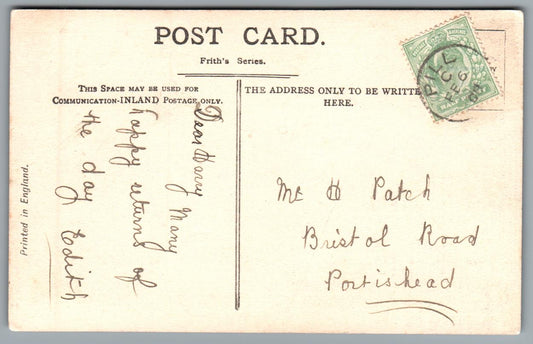 POST CARD.
Frith's Series.
THIS SPACE MAY BE USED FOR
COMMUNICATION-INLAND POSTAGE ONLY.
THE ADDRESS ONLY TO BE WRITTE
HERE.
Dear Harry Many
happy returns of
the day Edith
Mr H Patch
Bristol Road
Portishead
Printed in England.
PILL